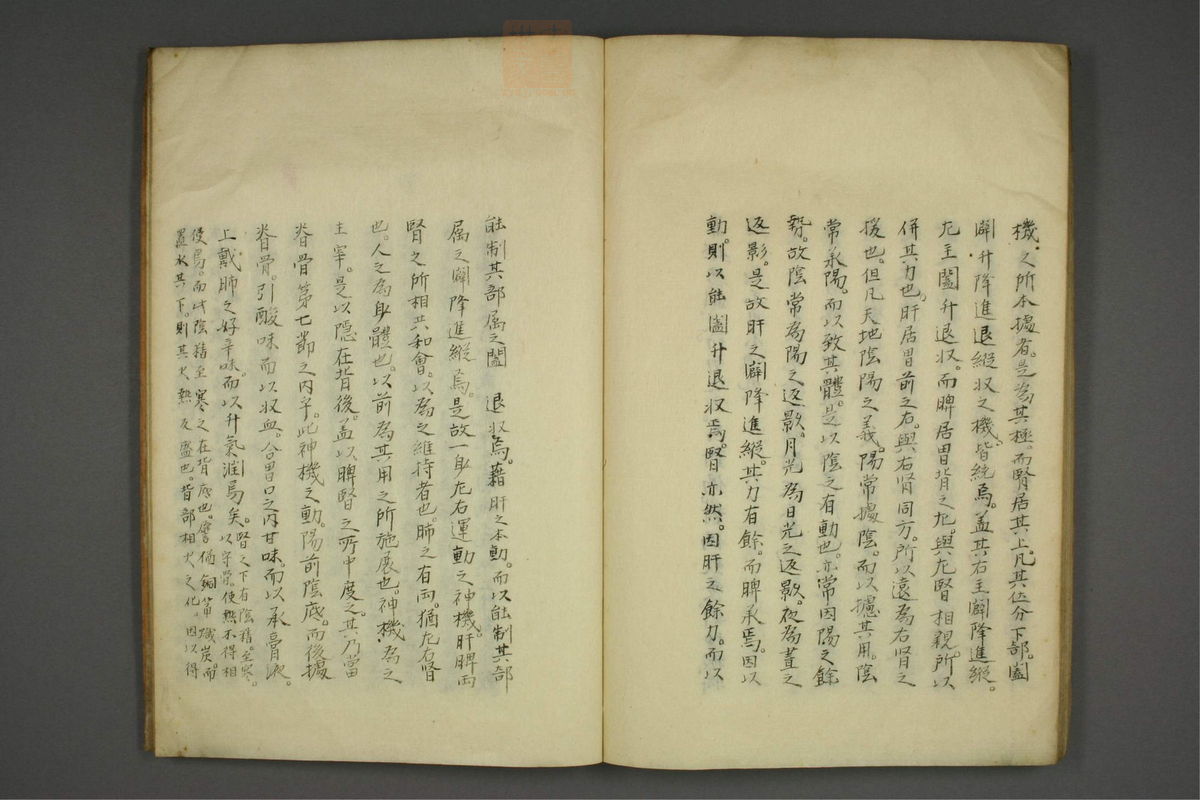 機之所本據者。是為其極。而腎居其上。凡其位分下部。闔
闢升降進退縱収之機。皆統焉。盖其右主闢降進縱。
左主闔升退収。而脾居胃背之左。與左腎相親。所以
併其力也。肝居胃前之右。與右腎同方。所以遠為右腎之
援也。但凡天地陰陽之義。陽常據陰。而以攄其用。陰
常承陽。而以致其體。是以陰之有動也。亦常因陽之餘
勢。故陰常為陽之返影。月光為日光之返影。夜為晝之
返影。是故肝之闢降進縱。其力有餘。而脾承焉。因以
動。則以能闔升退収焉。腎亦然。因肝之餘力。而以
能制其部属之闔 退収焉。藉肝之本動。而以能制其部
属之闢降進縱焉。是故一身左右運動之神機。肝脾両
腎之所相共和會。以為之維持者也。肺之有両。猶左右腎
也。人之為身體也。以前為其用之所施展也。神機為之
主宰。是以隱在背後。盖以脾腎之所中度之。其乃當
脊骨第七節之内乎。此神機之動。陽前陰底。而後據
脊骨。引酸味而以収血。合胃口之内甘味。而以承膏液。
上戴肺之好辛味。而以升氣滙焉矣。腎之下有陰精。至寒。
以守榮使熱不得相
侵焉。而此陰精至寒之在背底也。譬猶銅筩熾炭。而
置水其下。則其火熱反盛也。背部相火之化。因以得